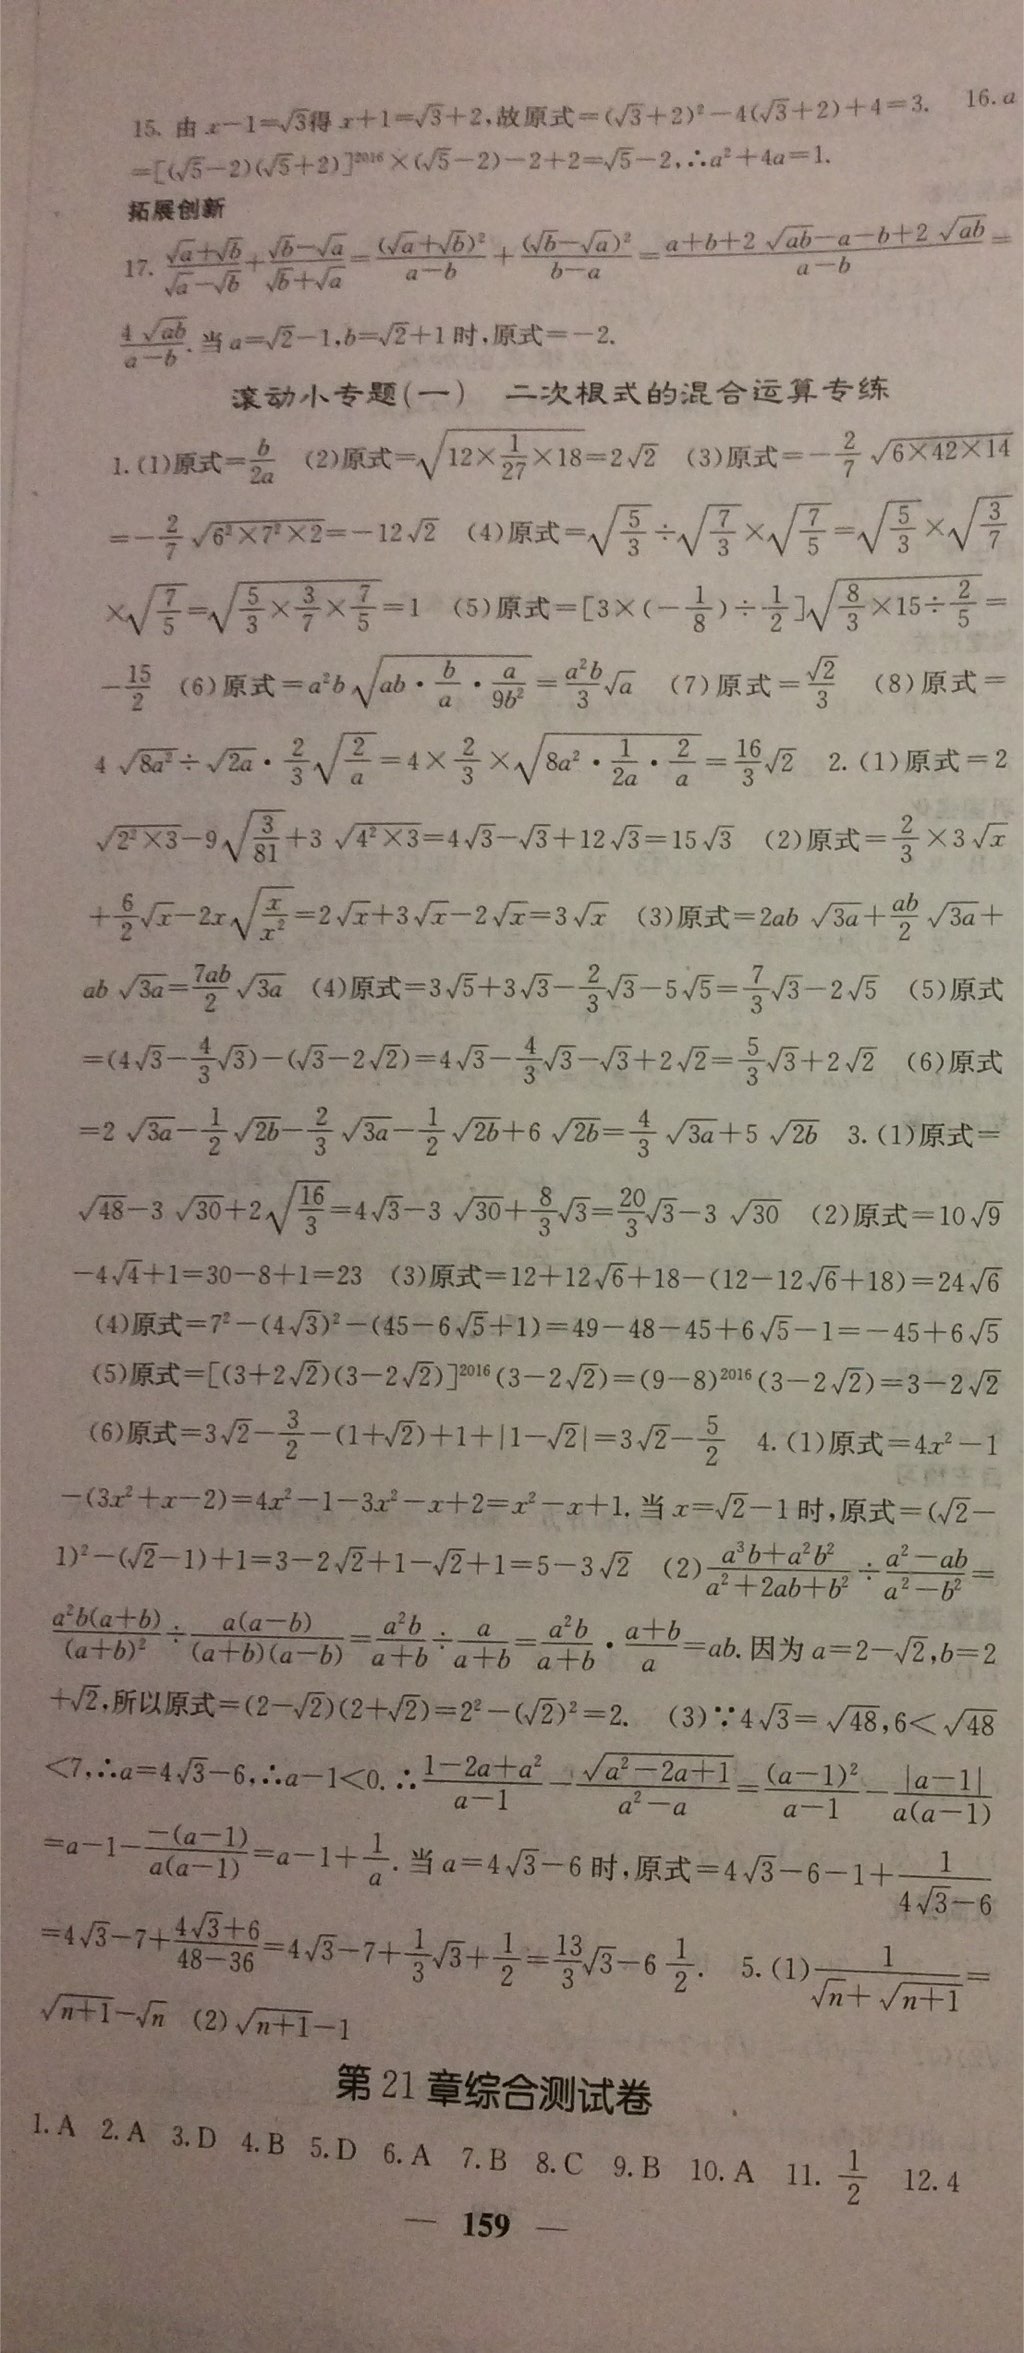 15. 由 x−1=√3得 x+1=√3+2,故原式=(√3+2)²−4(√3+2)+4=3. 16. a
=[(√5−2)(√5+2)]²⁰¹⁶×(√5−2)−2+2=√5−2,∴a²+4a=1.
拓展创新
17. (√a+√b)/(√a−√b)+(√b−√a)/(√b+√a)=(√a+√b)²/(a−b)+(√b−√a)²/(b−a)=(a+b+2√(ab)−a−b+2√(ab))/(a−b)=
4√(ab)/(a−b). 当 a=√2−1,b=√2+1 时,原式=−2.
滚动小专题(一) 二次根式的混合运算专练
1. (1)原式=b/(2a) (2)原式=√(12×1/27×18)=2√2 (3)原式=−2/7 √(6×42×14)
=−2/7 √(6²×7²×2)=−12√2 (4)原式=√(5/3)÷√(7/3)×√(7/5)=√(5/3)×√(3/7)
×√(7/5)=√(5/3×3/7×7/5)=1 (5)原式=[3×(−1/8)÷1/2]√(8/3×15÷2/5)=
−15/2 (6)原式=a²b√(ab·b/a·a/(9b²))=(a²b/3)√a (7)原式=√2/3 (8)原式=
4√(8a²)÷√(2a)·2/3√(2/a)=4×2/3×√(8a²·1/(2a)·2/a)=16/3√2 2. (1)原式=2
√(2²×3)−9√(3/81)+3√(4²×3)=4√3−√3+12√3=15√3 (2)原式=2/3×3√x
+6/2√x−2x√(x/x²)=2√x+3√x−2√x=3√x (3)原式=2ab√(3a)+ab/2√(3a)+
ab√(3a)=7ab/2√(3a) (4)原式=3√5+3√3−2/3√3−5√5=7/3√3−2√5 (5)原式
=(4√3−4/3√3)−(√3−2√2)=4√3−4/3√3−√3+2√2=5/3√3+2√2 (6)原式
=2√(3a)−1/2√(2b)−2/3√(3a)−1/2√(2b)+6√(2b)=4/3√(3a)+5√(2b) 3. (1)原式=
√48−3√30+2√(16/3)=4√3−3√30+8/3√3=20/3√3−3√30 (2)原式=10√9
−4√4+1=30−8+1=23 (3)原式=12+12√6+18−(12−12√6+18)=24√6
(4)原式=7²−(4√3)²−(45−6√5+1)=49−48−45+6√5−1=−45+6√5
(5)原式=[(3+2√2)(3−2√2)]²⁰¹⁶(3−2√2)=(9−8)²⁰¹⁶(3−2√2)=3−2√2
(6)原式=3√2−3/2−(1+√2)+1+|1−√2|=3√2−5/2 4. (1)原式=4x²−1
−(3x²+x−2)=4x²−1−3x²−x+2=x²−x+1. 当 x=√2−1 时,原式=(√2−
1)²−(√2−1)+1=3−2√2+1−√2+1=5−3√2 (2)(a³b+a²b²)/(a²+2ab+b²)÷(a²−ab)/(a²−b²)=
a²b(a+b)/(a+b)²÷a(a−b)/((a+b)(a−b))=a²b/(a+b)÷a/(a+b)=a²b/(a+b)·(a+b)/a=ab. 因为 a=2−√2,b=2
+√2,所以原式=(2−√2)(2+√2)=2²−(√2)²=2. (3)∵4√3=√48,6<√48
<7,∴a=4√3−6,∴a−1<0. ∴(1−2a+a²)/(a−1)−√(a²−2a+1)/(a²−a)=(a−1)²/(a−1)−|a−1|/(a(a−1))
=a−1−−(a−1)/(a(a−1))=a−1+1/a. 当 a=4√3−6 时,原式=4√3−6−1+1/(4√3−6)
=4√3−7+(4√3+6)/(48−36)=4√3−7+1/3√3+1/2=13/3√3−6 1/2. 5. (1)1/(√n+√(n+1))=
√(n+1)−√n (2)√(n+1)−1
第 21 章综合测试卷
1. A 2. A 3. D 4. B 5. D 6. A 7. B 8. C 9. B 10. A 11. 1/2 12. 4
— 159 —